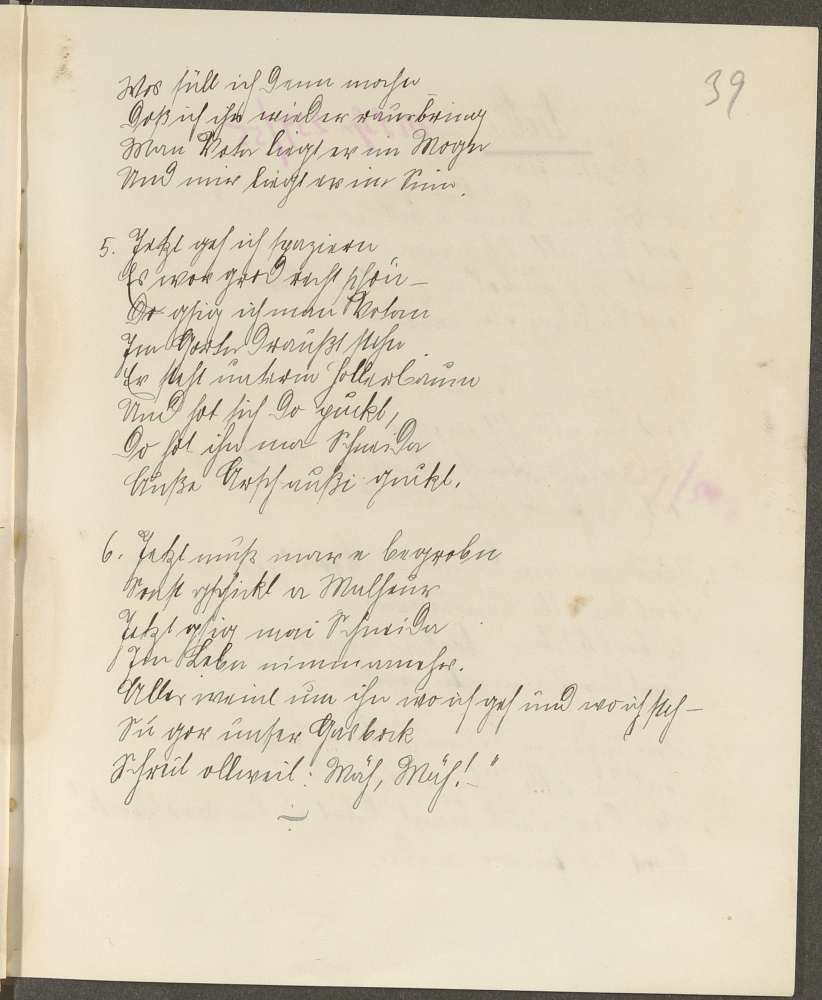 39
Wos süll ich denn mochn
Doß ich ihn wieder rausbring
Man Voter liegt er im Mogn
Und mir liegt er im Sinn.
5. Jetzt geh ich spaziern
Es wor grod recht schön –
Do gsig ich man Votan
Im Gorten draußt stehn
Er steht unterm Hollerbaum
Und hot sich do puckt,
Do hot ihn ma Schneida
Außn Arsch außi guckt.
6. Jetzt muß mar n begrobn
Sonst gschickt a Malheur
Jetzt gsig mai Schneida
Im Lebn nimmamehr.
Alles weint um ihn wo ich geh und wo ich steh –
Su gor unser Gasbock
Schreit ollweil: Mäh, Mäh! –"